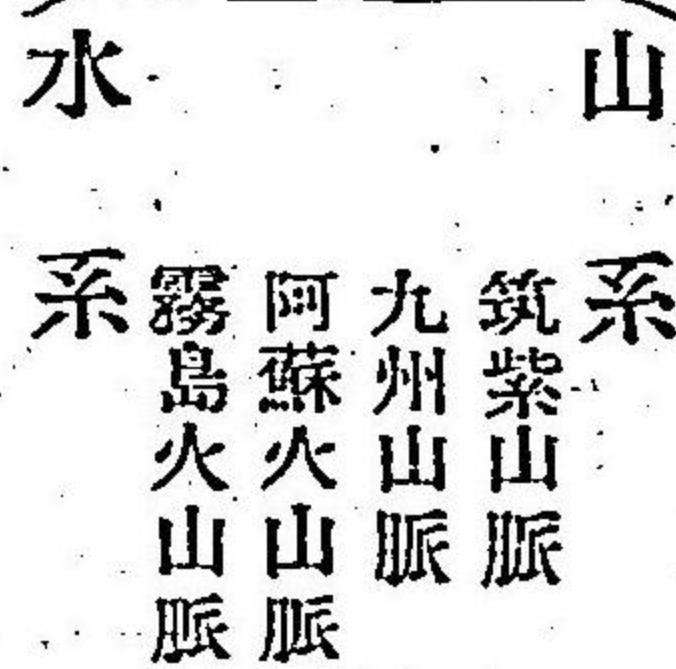 山系
筑紫山脈
九州山脈
阿蘇火山脈
霧島火山脈
水系